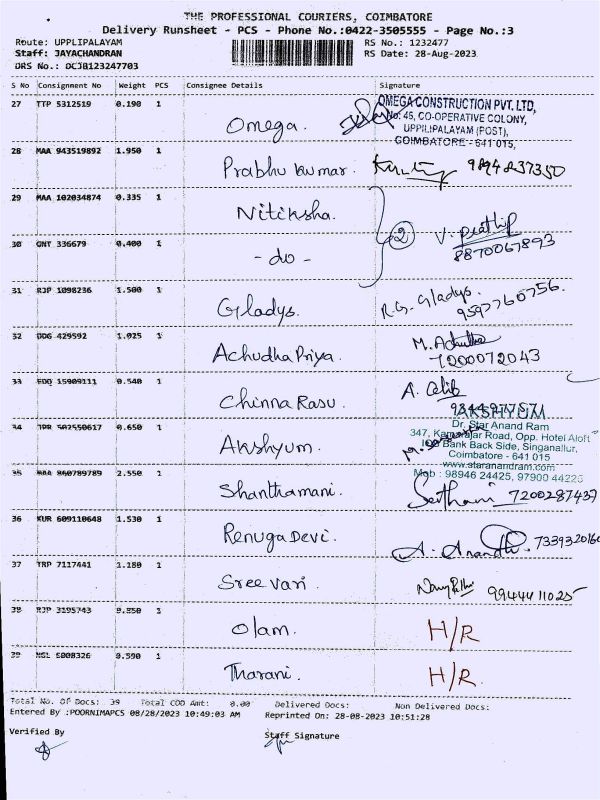 THE PROFESSIONAL COURIERS, COIMBATORE
Delivery Runsheet - PCS - Phone No.:0422-3505555 - Page No.:3
Route: UPPLIPALAYAM RS No.: 1232477
Staff: JAYACHANDRAN RS Date: 28-Aug-2023
DRS No.: DCJB123247703
S No Consignment No Weight PCS Consignee Details Signature
27 TTP 5312519 0.190 1 Omega.
OMEGA CONSTRUCTION PVT. LTD,
No: 45, CO-OPERATIVE COLONY,
UPPILIPALAYAM (POST),
COIMBATORE - 641 015,
28 MAA 943519892 1.950 1 Prabhu kumar. 9894837350
29 MAA 102034874 0.335 1 Nitiksha.
2 V. Prathip
8870067893
30 GNT 336679 0.400 1 - do -
31 RJP 1098236 1.500 1 Gladys. R.G. Gladys.
9597760756.
32 DDG 429592 1.025 1 Achudha Priya. M. Achudha
7200072043
33 EDQ 15909111 0.540 1 Chinna Rasu. A.
AKSHYUM
Dr. Star Anand Ram
34 JPR 502550617 0.650 1 Akshyum.
347, Kamarajar Road, Opp. Hotel Aloft
Bank Back Side, Singanallur,
Coimbatore - 641 015
www.staranandram.com
Mob : 98946 24425, 97900 44225
35 MAA 860789789 2.550 1 Shanthamani. 7200287437
36 KUR 609110648 1.530 1 Renuga Devi. A. Anandhi. 733932016
37 TRP 7117441 1.180 1 Sree vari. 9944411025
38 RJP 3195743 0.350 1 Olam. H/R
39 NGL 5008326 0.590 1 Tharani. H/R.
Total No. Of Docs: 39 Total COD Amt: 0.00 Delivered Docs: Non Delivered Docs:
Entered By :POORNIMAPCS 08/28/2023 10:49:03 AM Reprinted On: 28-08-2023 10:51:28
Verified By Staff Signature